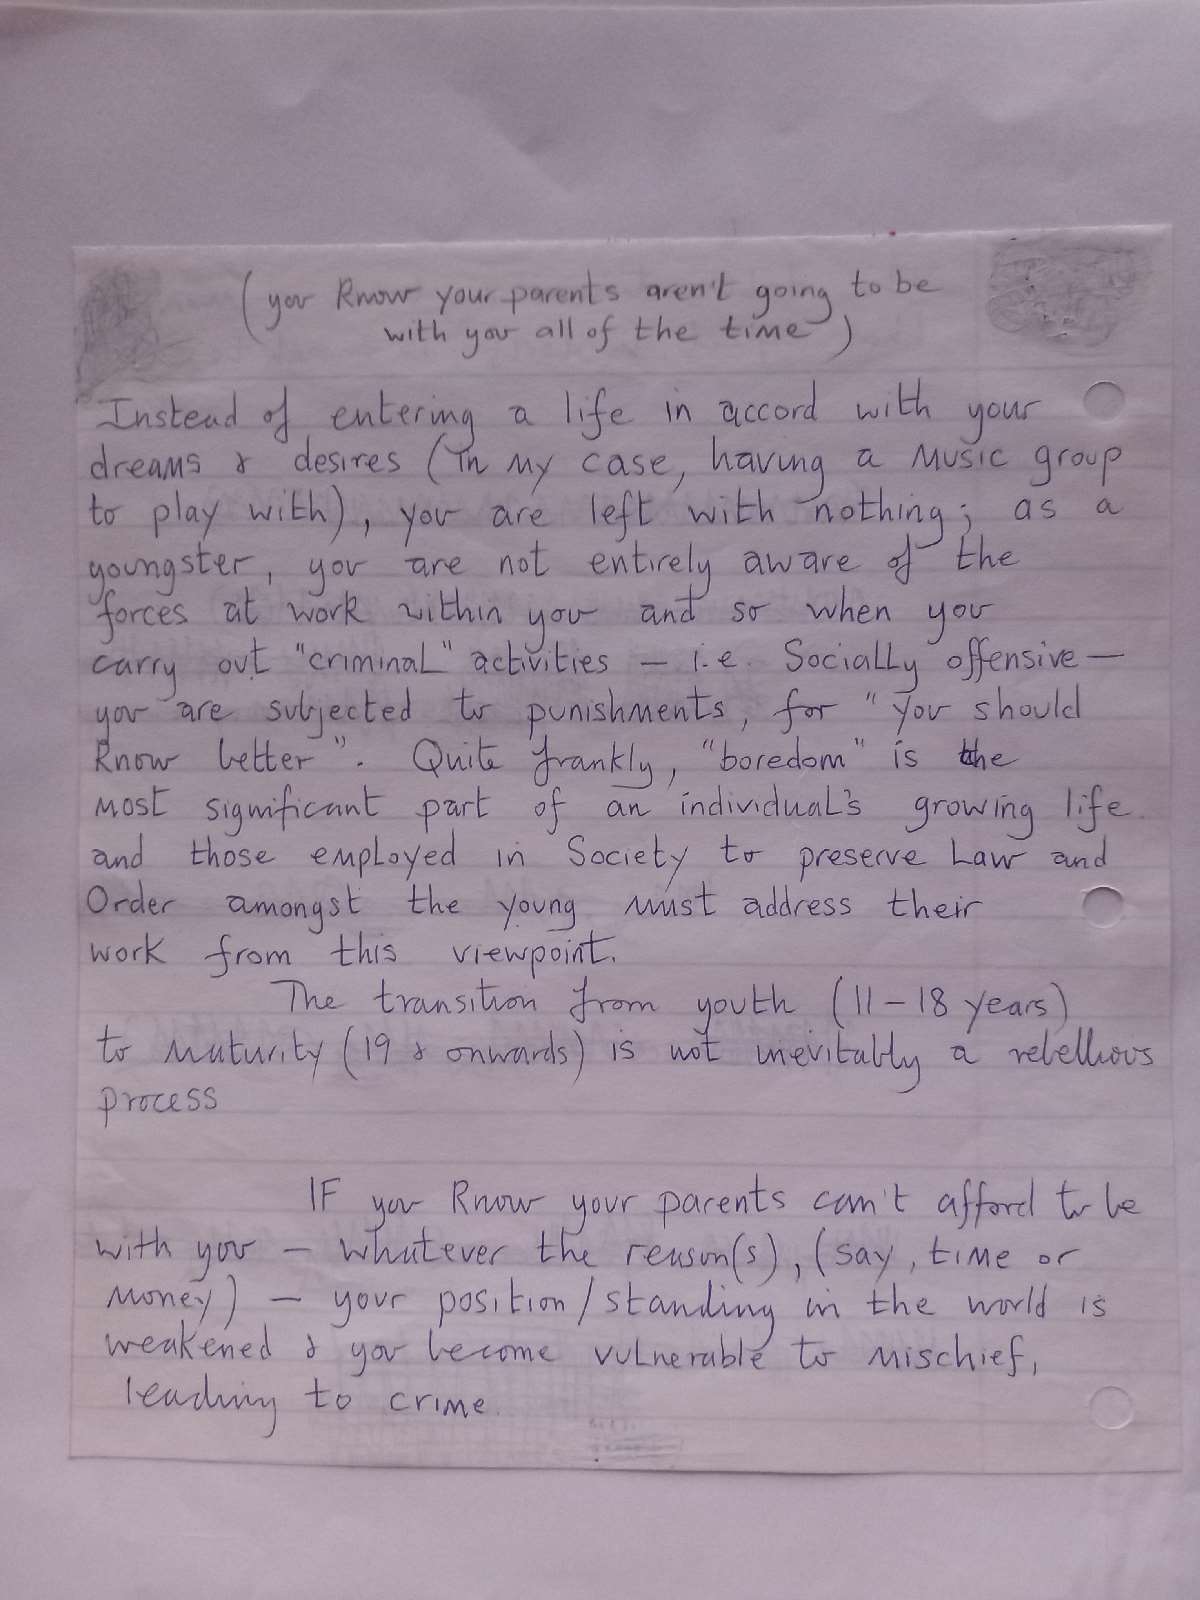 (you know your parents aren't going to be
with you all of the time)
Instead of entering a life in accord with your
dreams & desires (in my case, having a music group
to play with), you are left with nothing; as a
youngster, you are not entirely aware of the
forces at work within you and so when you
carry out "criminal" activities – i.e. Socially offensive –
you are subjected to punishments, for "You should
know better". Quite frankly, "boredom" is the
most significant part of an individual's growing life
and those employed in Society to preserve Law and
Order amongst the young must address their
work from this viewpoint.
The transition from youth (11-18 years)
to maturity (19 & onwards) is not inevitably a rebellious
process
IF you know your parents can't afford to be
with you – whatever the reason(s), (say, time or
money) – your position/standing in the world is
weakened & you become vulnerable to mischief,
leading to crime.